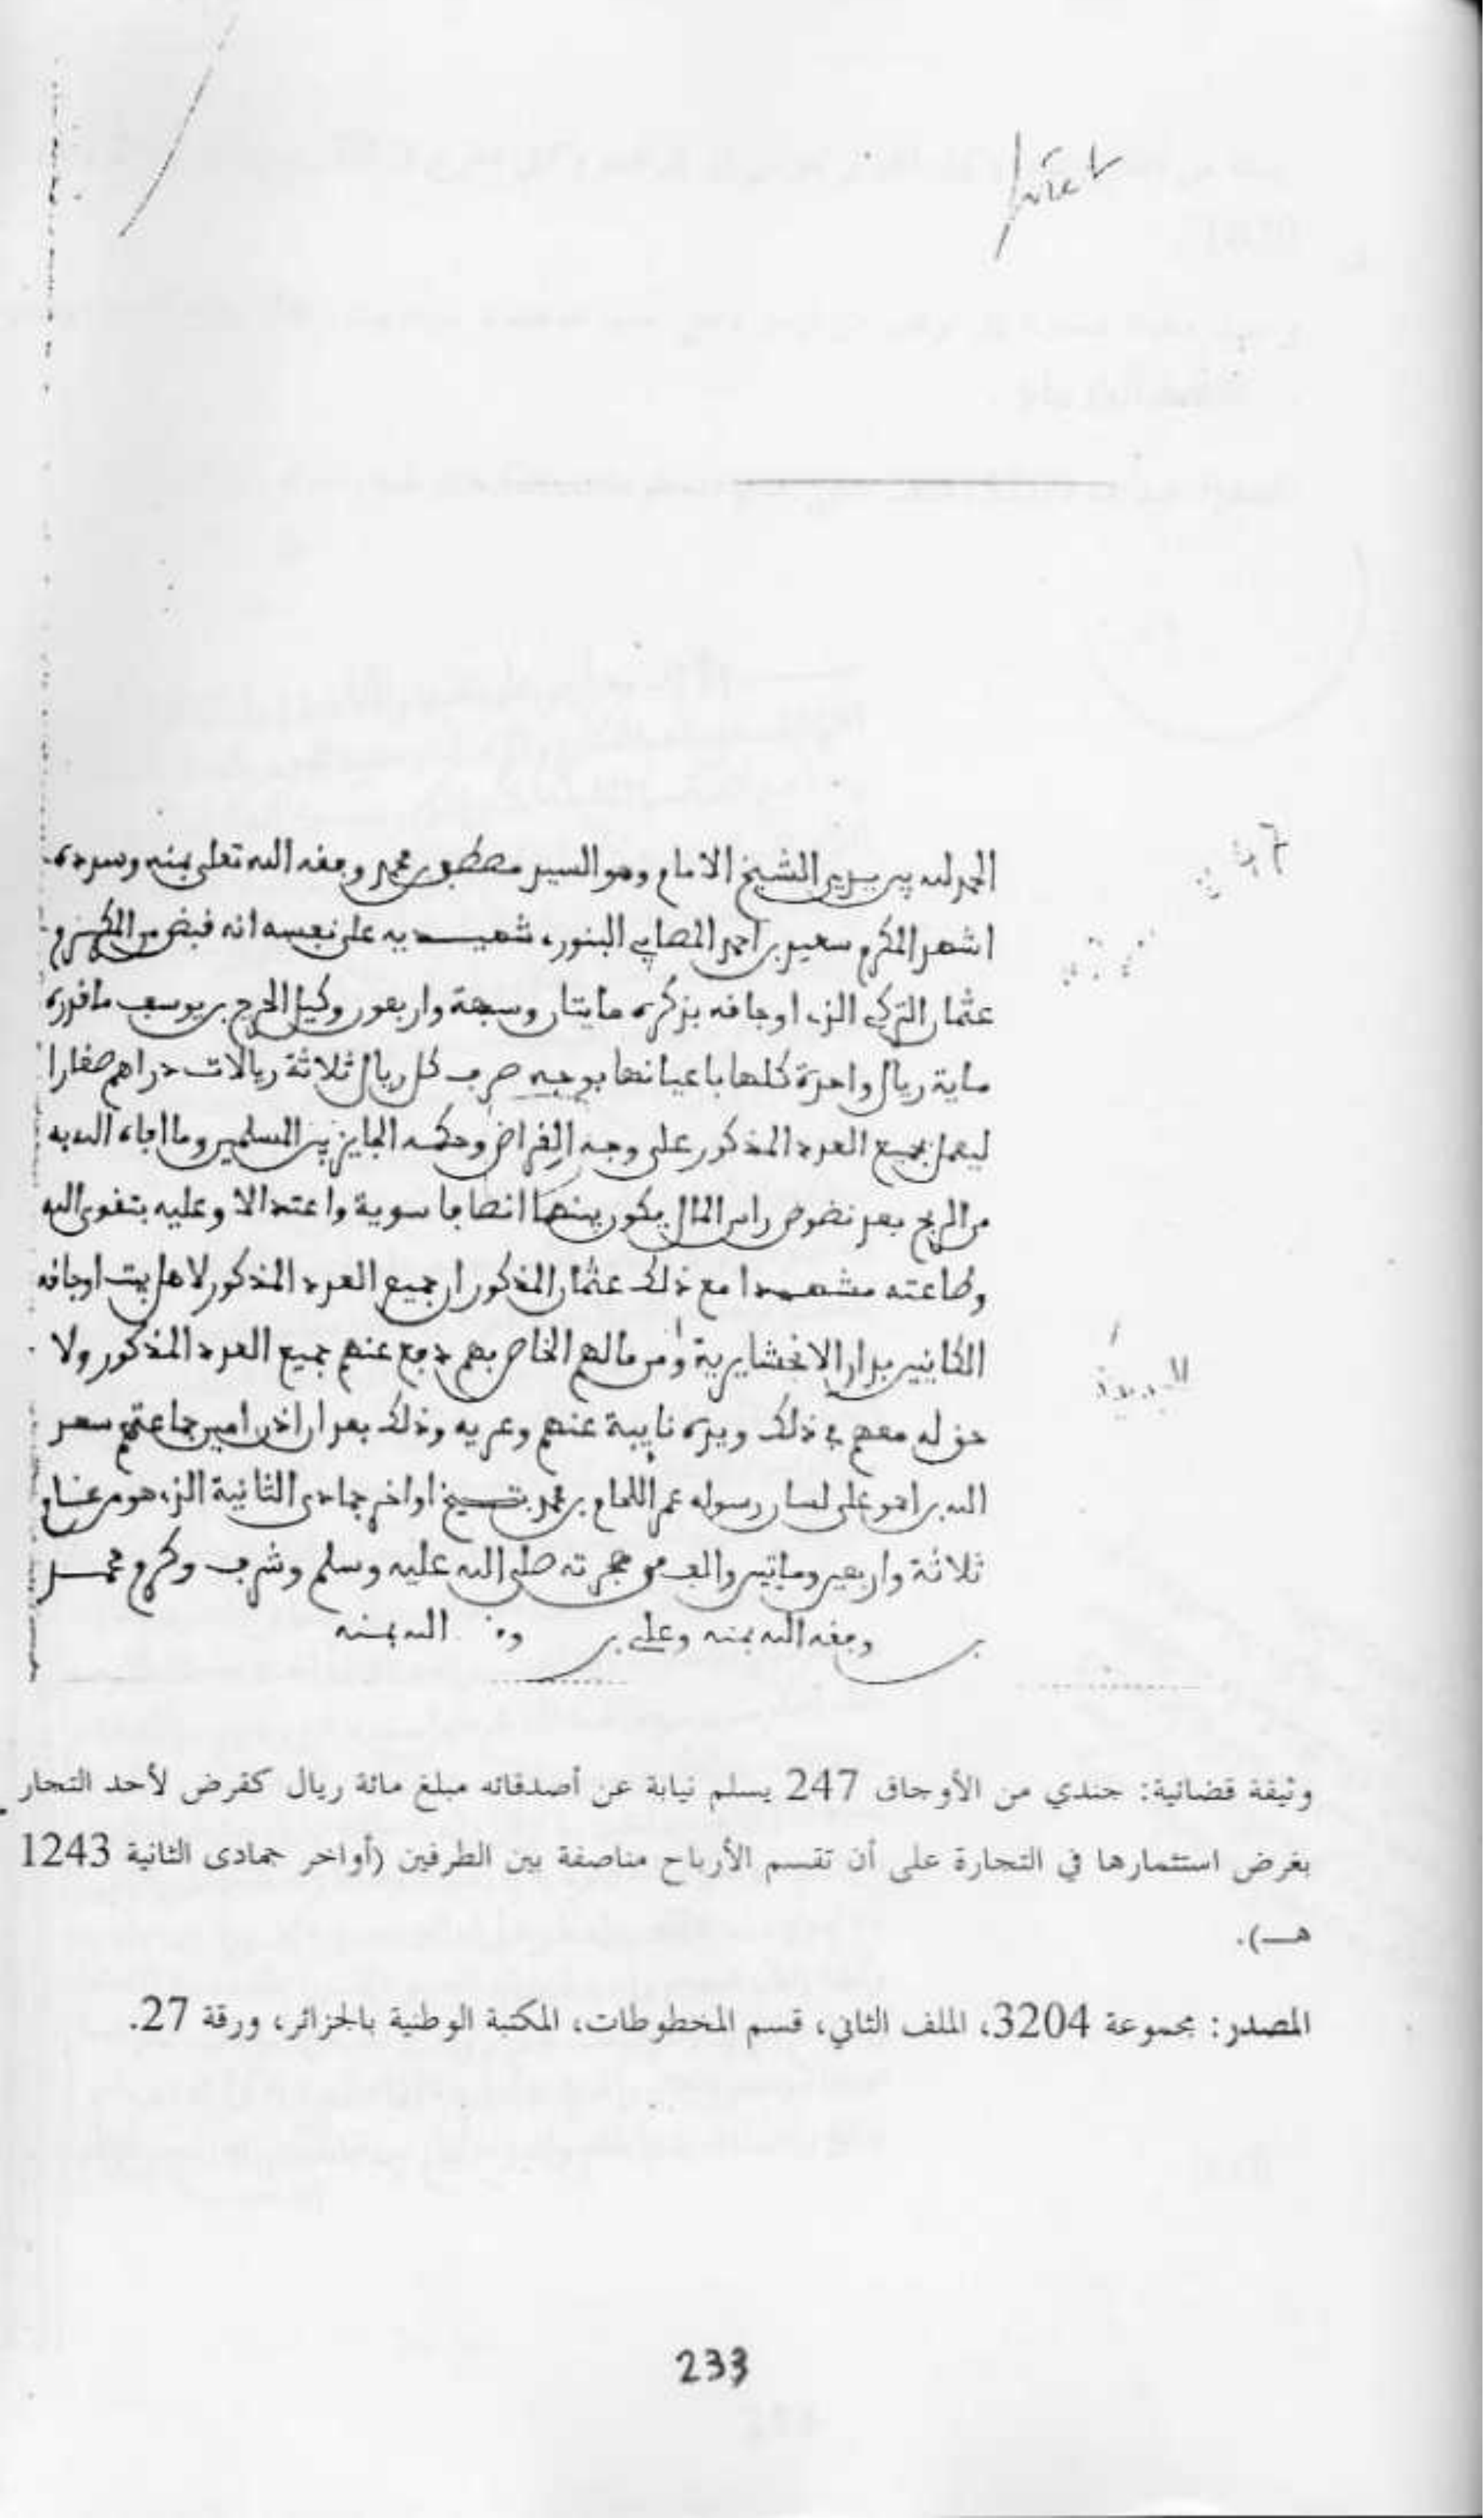 الحمد لله بين يدي الشيخ الامام وهو السيد مصطفى بن محمد وفقه الله تعلى بمنه وسدده
اشهد المكرم سعيد بن احمد المصابي شهيديه على نفسه انه قبض من المكرم
عثمان التركي الذي اوجاقه بذكره مايتان وسبعة واربعون وكيل الحرج بن يوسف ما قدره
ماية ريال واحدة كلها باعيانها بوجيه صرف كل ريال ثلاثة ريالات دراهم صغارا
ليعمل بجميع العدد المذكور على وجه القراض وحكمه الجايز بين المسلمين وما افاء الله به
من الربح بعد نضوض راس المال يكون بينهما انصافا سوية واعتدالا وعليه بتقوى الله
وطاعته مشهدا مع ذلك عثمان المذكور ان جميع العدد المذكور لاهل بيت اوجاقه
الكاينين بدار الانجشايرية ومن مالهم الخاص بهم دفع عنهم جميع العدد المذكور ولا
حق له معهم في ذلك ويده نايبة عنهم وعريه وذلك بعد ان اذن امين جماعتهم سعد
الله بن على لسان رسوله بن محمد بتاريخ اواخر جمادى الثانية الذي هو من عام
ثلاثة واربعين ومايتين والف من هجرته صلى الله عليه وسلم وشرف وكرم محمد
بن وفقه الله بمنه وعلي بن الله بمنه
وثيقة قضائية: جندي من الأوجاق 247 يسلم نيابة عن أصدقائه مبلغ مائة ريال كقرض لأحد التجار
بغرض استثمارها في التجارة على أن تقسم الأرباح مناصفة بين الطرفين (أواخر جمادى الثانية 1243
هـ).
المصدر: مجموعة 3204، الملف الثاني، قسم المخطوطات، المكتبة الوطنية بالجزائر، ورقة 27.
233